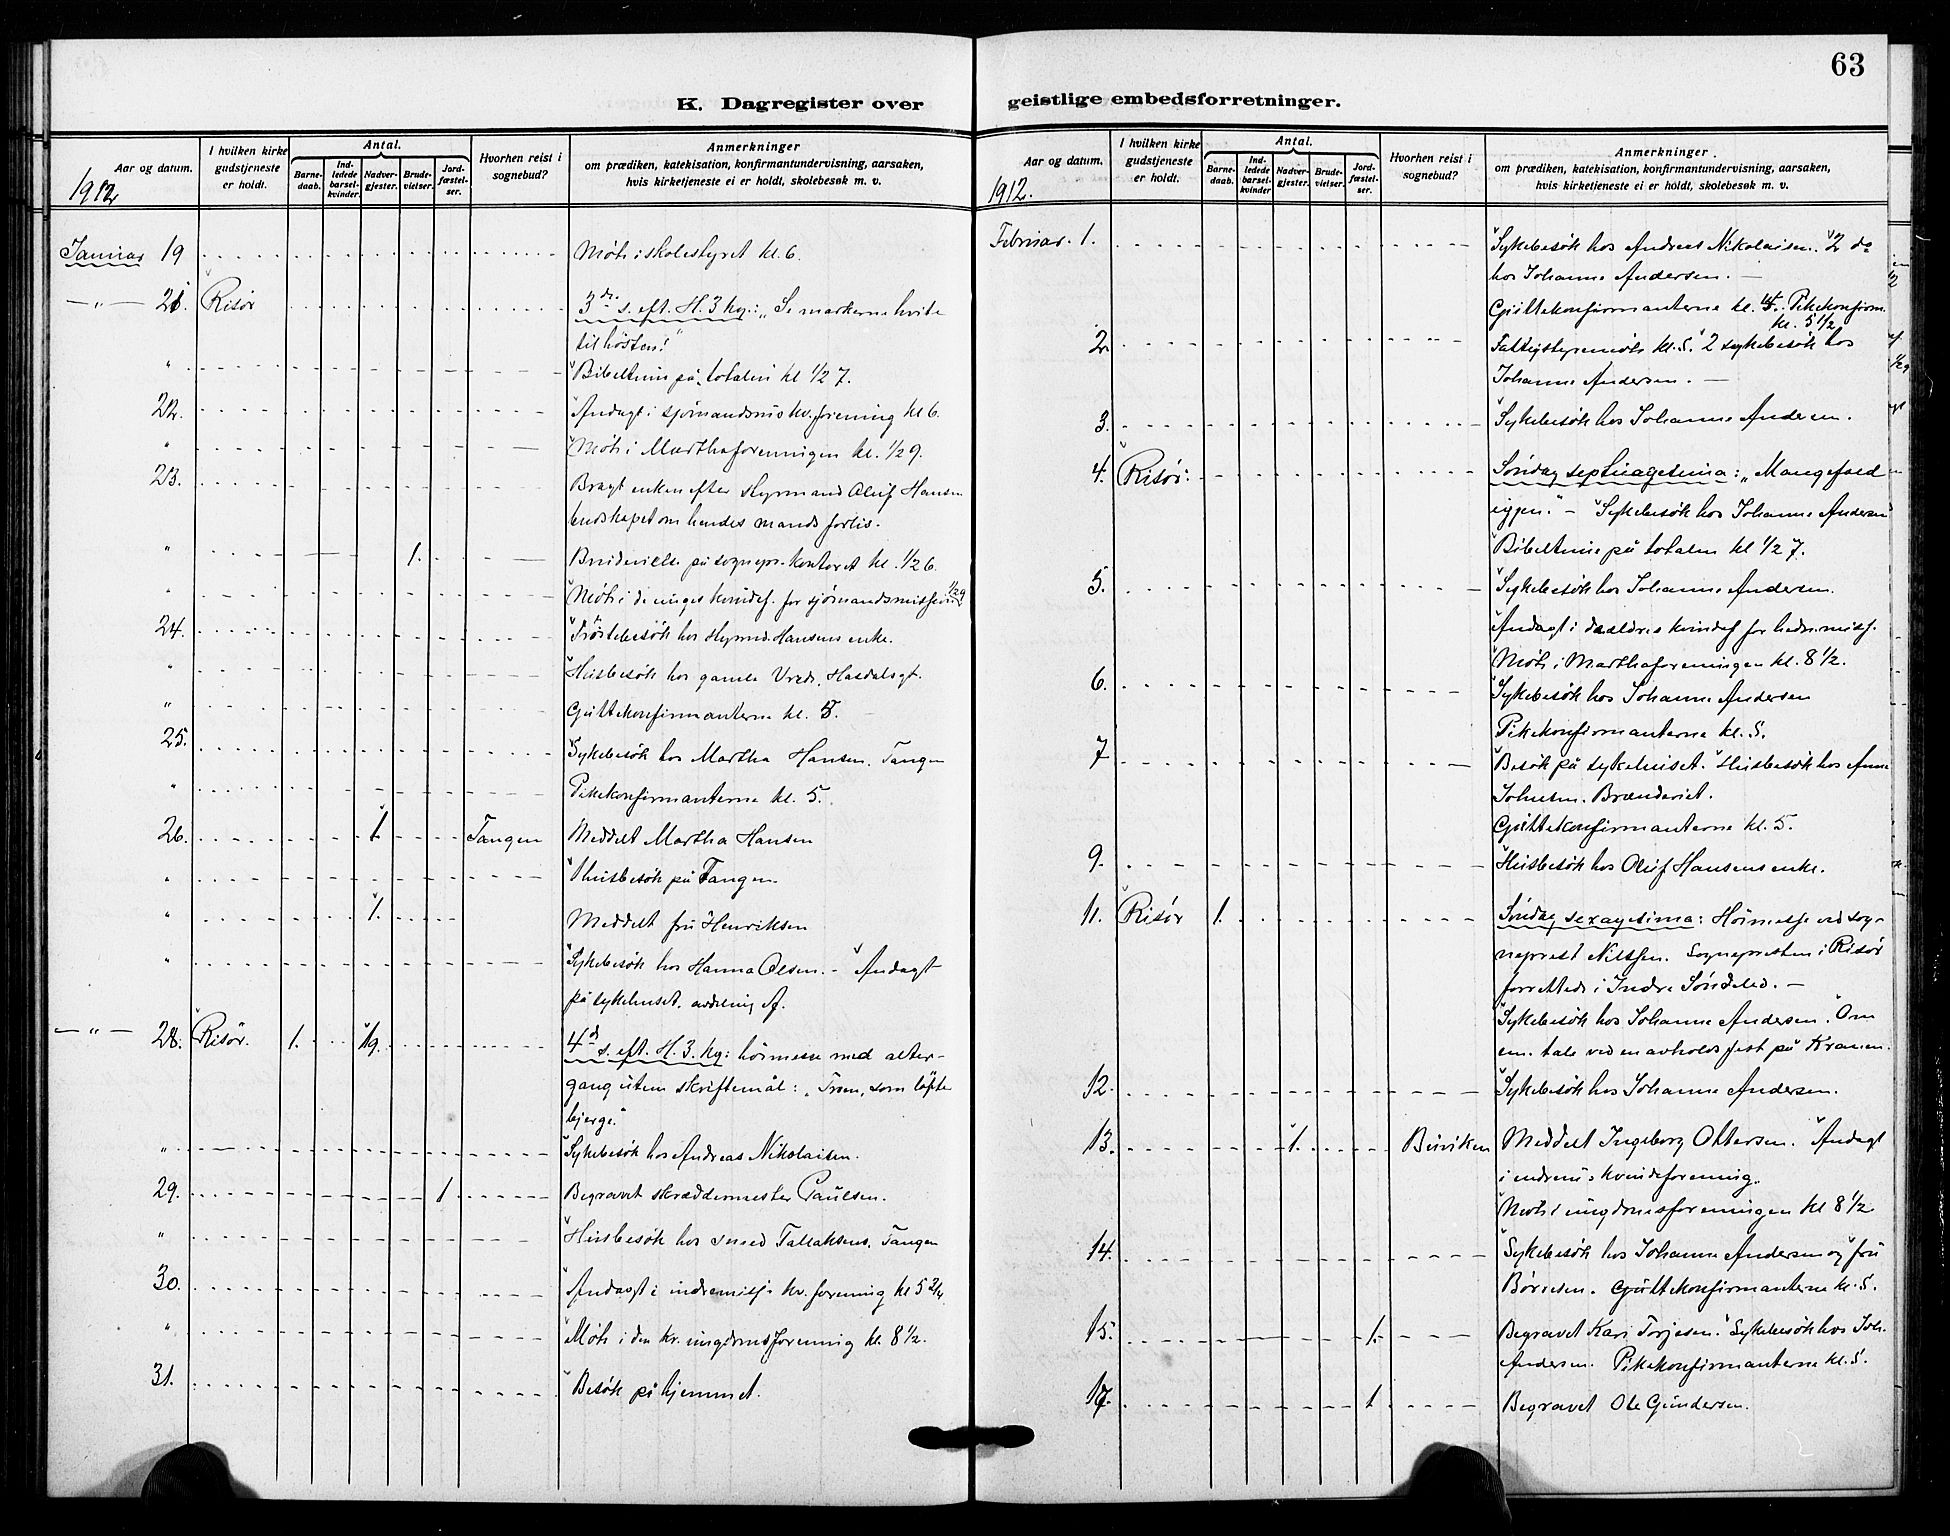 63
K. Dagregister over geistlige embedsforretninger.
Aar og datum. I hvilken kirke gudstjeneste er holdt. Antal. Barnedaab. Indledede barselkvinder. Nadvergjester. Brudevielser. Jordfæstelser. Hvorhen reist i sognebud? Anmerkninger
om prædiken, katekisation, konfirmantundervisning, aarsaken,
hvis kirketjeneste ei er holdt, skolebesøk m. v.
1912
Januar 19 Møte i skolestyret kl. 6.
21 Risør 3die s. eft. H. 3 kg.: "Se markerne hvite
til høsten!"
" Bibeltime på totalen kl 1/2 7.
22. Andagt i sjømandsmis kv. forening kl 6.
" Møte i Marthaforeningen kl. 1/2 9.
23. Bragt enken efter styrmand Oluf Hansen
budskapet om hendes mands forlis.
" 1. Brudevielse på sognepr. kontoret kl. 1/2 6.
" Møte i de unges kvindef. for sjømandsmissionen 1/2 9
24. Trøstebesøk hos styrmd. Hansens enke.
" Husbesøk hos gamle Hasdalsgt.
" Guttekonfirmanterne kl. 5.
25. Sykebesøk hos Martha Hansen. Tangen
" Pikekonfirmanterne kl. 5.
26. 1. Tangen Meddelt Martha Hansen
" 1 husbesøk på Tangen.
" 1. Meddelt fru Henriksen
" Sykebesøk hos Hanna Olsen. - Andagt
på sykehuset. avdeling A.
— " — 28. Risør. 1. 19. 4de s. eft. H. 3. kg: høimesse med alter-
gang uten skriftemål: "Troen, som løfte
bjerge."
" Sykebesøk hos Andreas Nikolaisen.
29. 1 Begravet skræddermester Paulsen.
" Husbesøk hos Tallaksens. Tangen
30. Andagt i indremisj. kv. forening kl 5 3/4.
" Møte i den kr. ungdomsforening kl. 8 1/2.
31. Besøk på hjemmet.
Aar og datum. I hvilken kirke gudstjeneste er holdt. Antal. Barnedaab. Indledede barselkvinder Nadvergjester. Brudevielser. Jordfæstelser. Hvorhen reist i sognebud? Anmerkninger.
om prædiken, katekisation, konfirmantundervisning, aarsaken,
hvis kirketjeneste ei er holdt, skolebesøk m. v.
1912.
Februar. 1. Sykebesøk hos Andreas Nikolaisen. 2 do
hos Johanne Andersen. —
Guttekonfirmanterne kl. 4. Pikekonfirm.
kl. 5 1/2
2. Fattigstyremøte kl. 5. 2 sykebesøk hos
Johanne Andersen. —
3. Sykebesøk hos Johanne Andersen.
4. Risør: Søndag septuagesima: "Mangefold
igjen." - Sykebesøk hos Johanne Andersen
Bibeltime på totalen kl 1/2 7.
5. Sykebesøk hos Johanne Andersen.
Andagt i de ældres kvindef for hedn. misj.
Møte i Marthaforeningen kl. 8 1/2.
6. Sykebesøk hos Johanne Andersen
Pikekonfirmanterne kl. 5.
7 Besøk på sykehuset. Husbesøk hos Anne
Johnsen. Brænderiet.
Guttekonfirmanterne kl. 5.
9. Husbesøk hos Oluf Hansens enke.
11. Risør 1. Søndag sexagesima: Høimesse ved sog-
neprest Nilssen. Sognepresten i Risør
forrettede i Indre Søndeled. —
Sykebesøk hos Johanne Andersen.
tale ved en avholdsfest på Kranen.
12. Sykebesøk hos Johanne Andersen.
13. 1. Buviken Meddelt Ingeborg Ottersen. Andagt
i indremis kvindeforening.
Møte i ungdomsforeningen kl 8 1/2
14. Sykebesøk hos Johanne Andersen og fru
Børresen. Guttekonfirmanterne kl. 5.
15. 1. Begravet Kari Torjesen. Sykebesøk hos Joh.
Andersen. Pikekonfirmanterne kl. 5.
17. 1 Begravet Ole Gundersen.